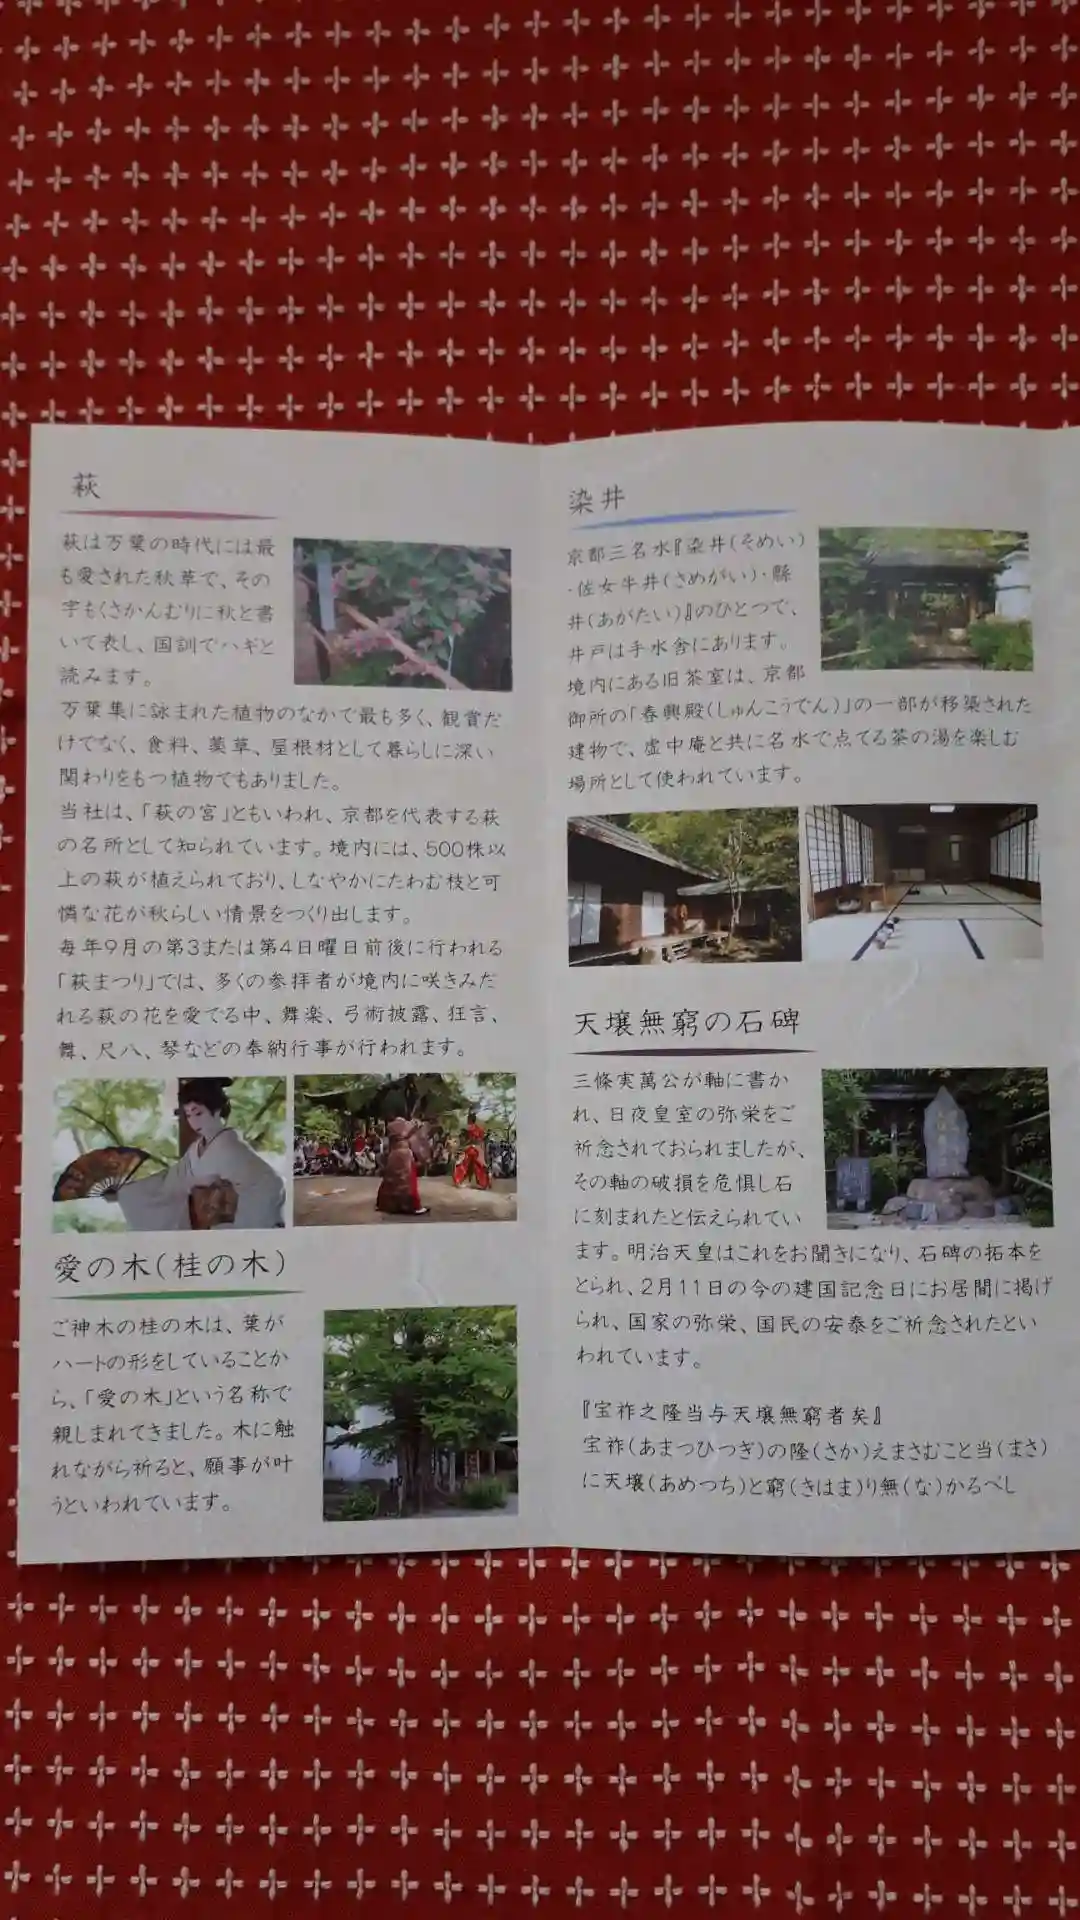 萩
萩は万葉の時代には最
も愛された秋草で、その
字もくさかんむりに秋と書
いて表し、国訓でハギと
読みます。
万葉集に詠まれた植物のなかで最も多く、観賞だ
けでなく、食料、薬草、屋根材として暮らしに深い
関わりをもつ植物でもありました。
当社は、「萩の宮」ともいわれ、京都を代表する萩
の名所として知られています。境内には、500株以
上の萩が植えられており、しなやかにたわむ枝と可
憐な花が秋らしい情景をつくり出します。
毎年9月の第3または第4日曜日前後に行われる
「萩まつり」では、多くの参拝者が境内に咲きみだ
れる萩の花を愛でる中、舞楽、弓術披露、狂言、
舞、尺八、琴などの奉納行事が行われます。
愛の木(桂の木)
ご神木の桂の木は、葉が
ハートの形をしていることか
ら、「愛の木」という名称で
親しまれてきました。木に触
れながら祈ると、願事が叶
うといわれています。
染井
京都三名水『染井(そめい)
・佐女牛井(さめがい)・縣
井(あがたい)』のひとつで、
井戸は手水舎にあります。
境内にある旧茶室は、京都
御所の「春興殿(しゅんこうでん)」の一部が移築された
建物で、虚中庵と共に名水で点てる茶の湯を楽しむ
場所として使われています。
天壌無窮の石碑
三條実萬公が軸に書か
れ、日夜皇室の弥栄をご
祈念されておられましたが、
その軸の破損を危惧し石
に刻まれたと伝えられてい
ます。明治天皇はこれをお聞きになり、石碑の拓本を
とられ、2月11日の今の建国記念日にお居間に掲げ
られ、国家の弥栄、国民の安泰をご祈念されたとい
われています。
『宝祚之隆当与天壌無窮者矣』
宝祚(あまつひつぎ)の隆(さか)えまさむこと当(まさ)
に天壌(あめつち)と窮(きはま)り無(な)かるべし